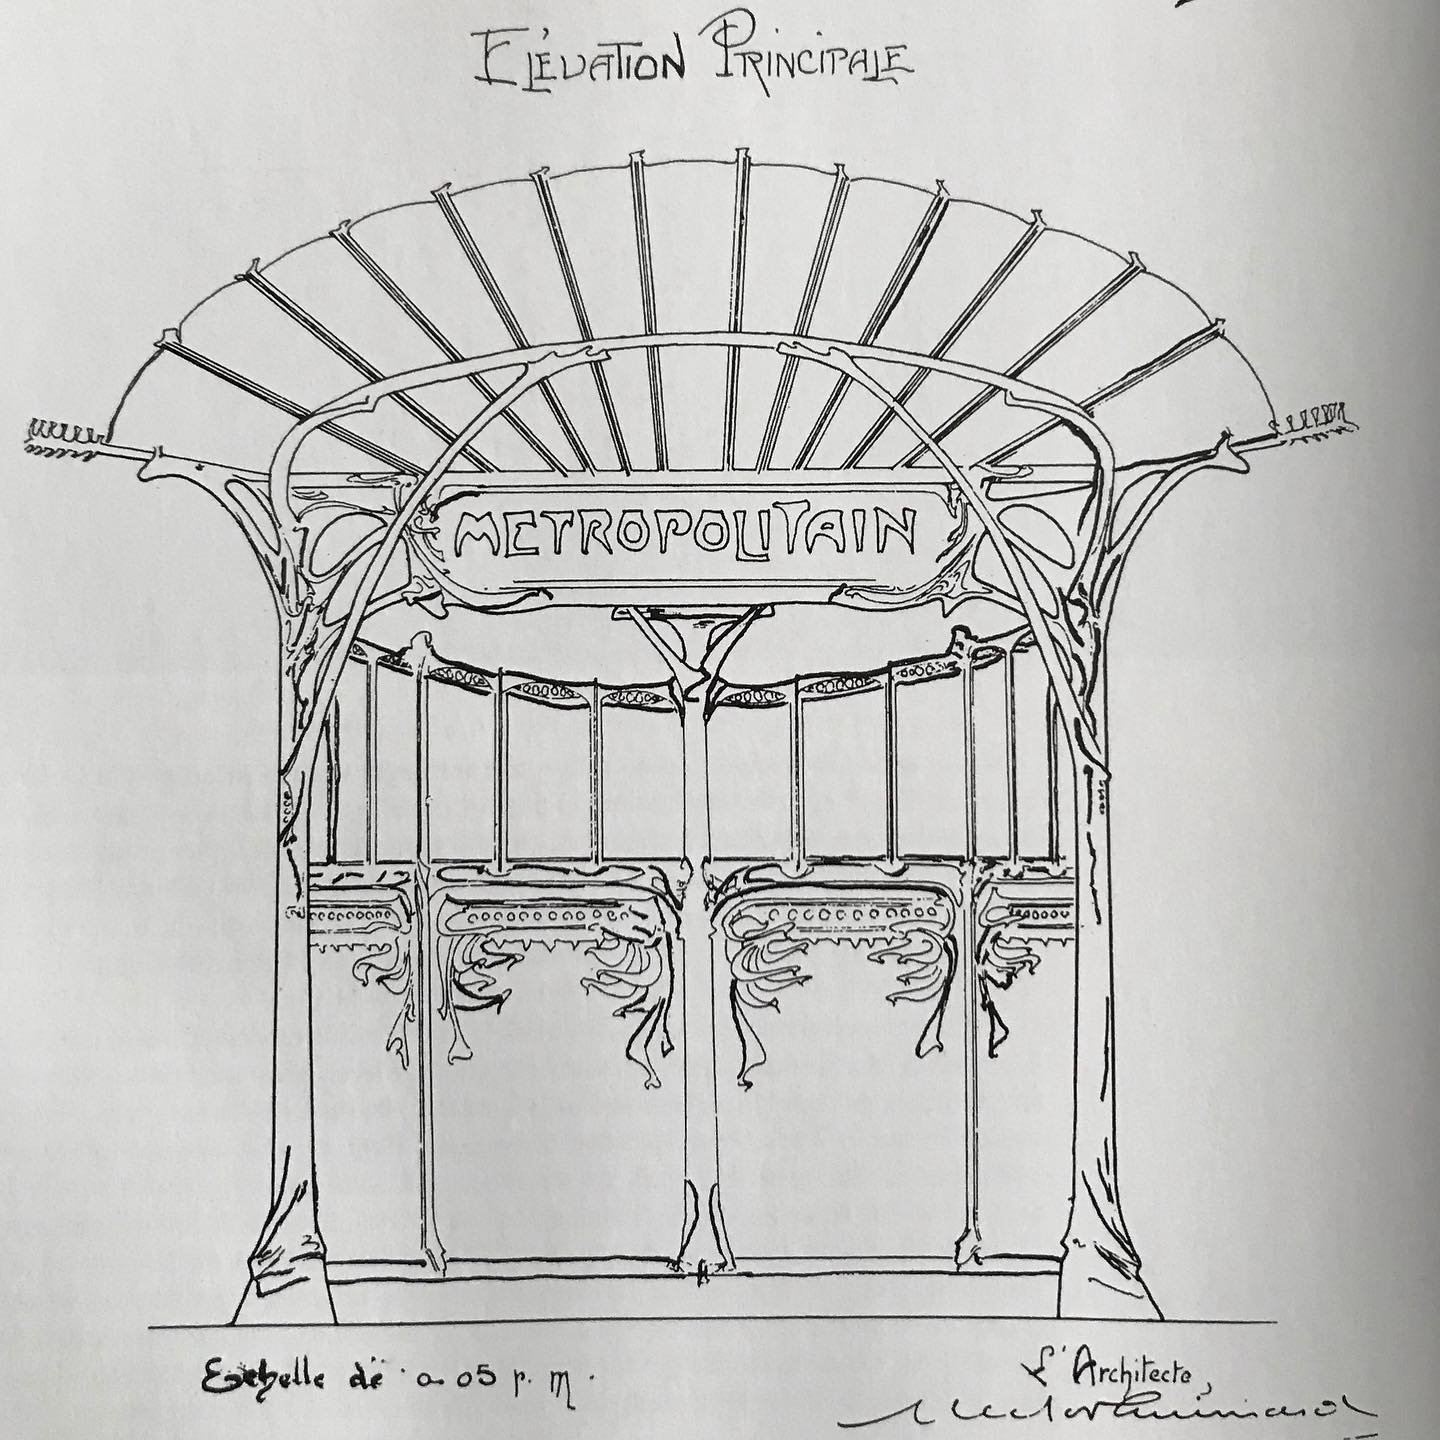 Elévation Principale
METROPOLITAIN
Echelle de 0.05 p. m.
L'Architecte,
Hector Guimard